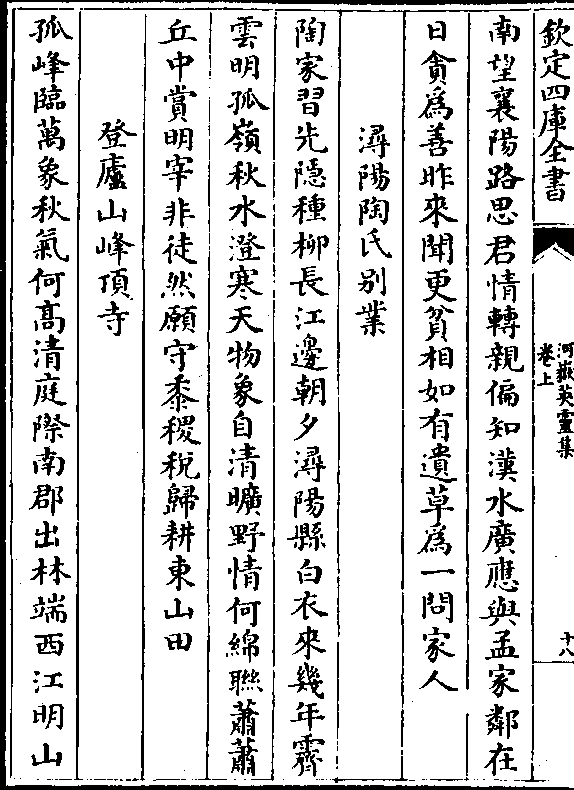 欽定四庫全書
河嶽英靈集
卷上
十八
南望襄陽路思君情轉親偏知漢水廣應與孟家鄰在
日貪為善昨來聞更貧相如有遺草為一問家人
潯陽陶氏别業
陶家習先隱種柳長江邊朝夕潯陽縣白衣來幾年霽
雲明孤嶺秋水澄寒天物象自清曠野情何綿聯蕭蕭
丘中賞明宰非徒然願守黍稷稅歸耕東山田
登廬山峰頂寺
孤峰臨萬象秋氣何高清庭際南郡出林端西江明山